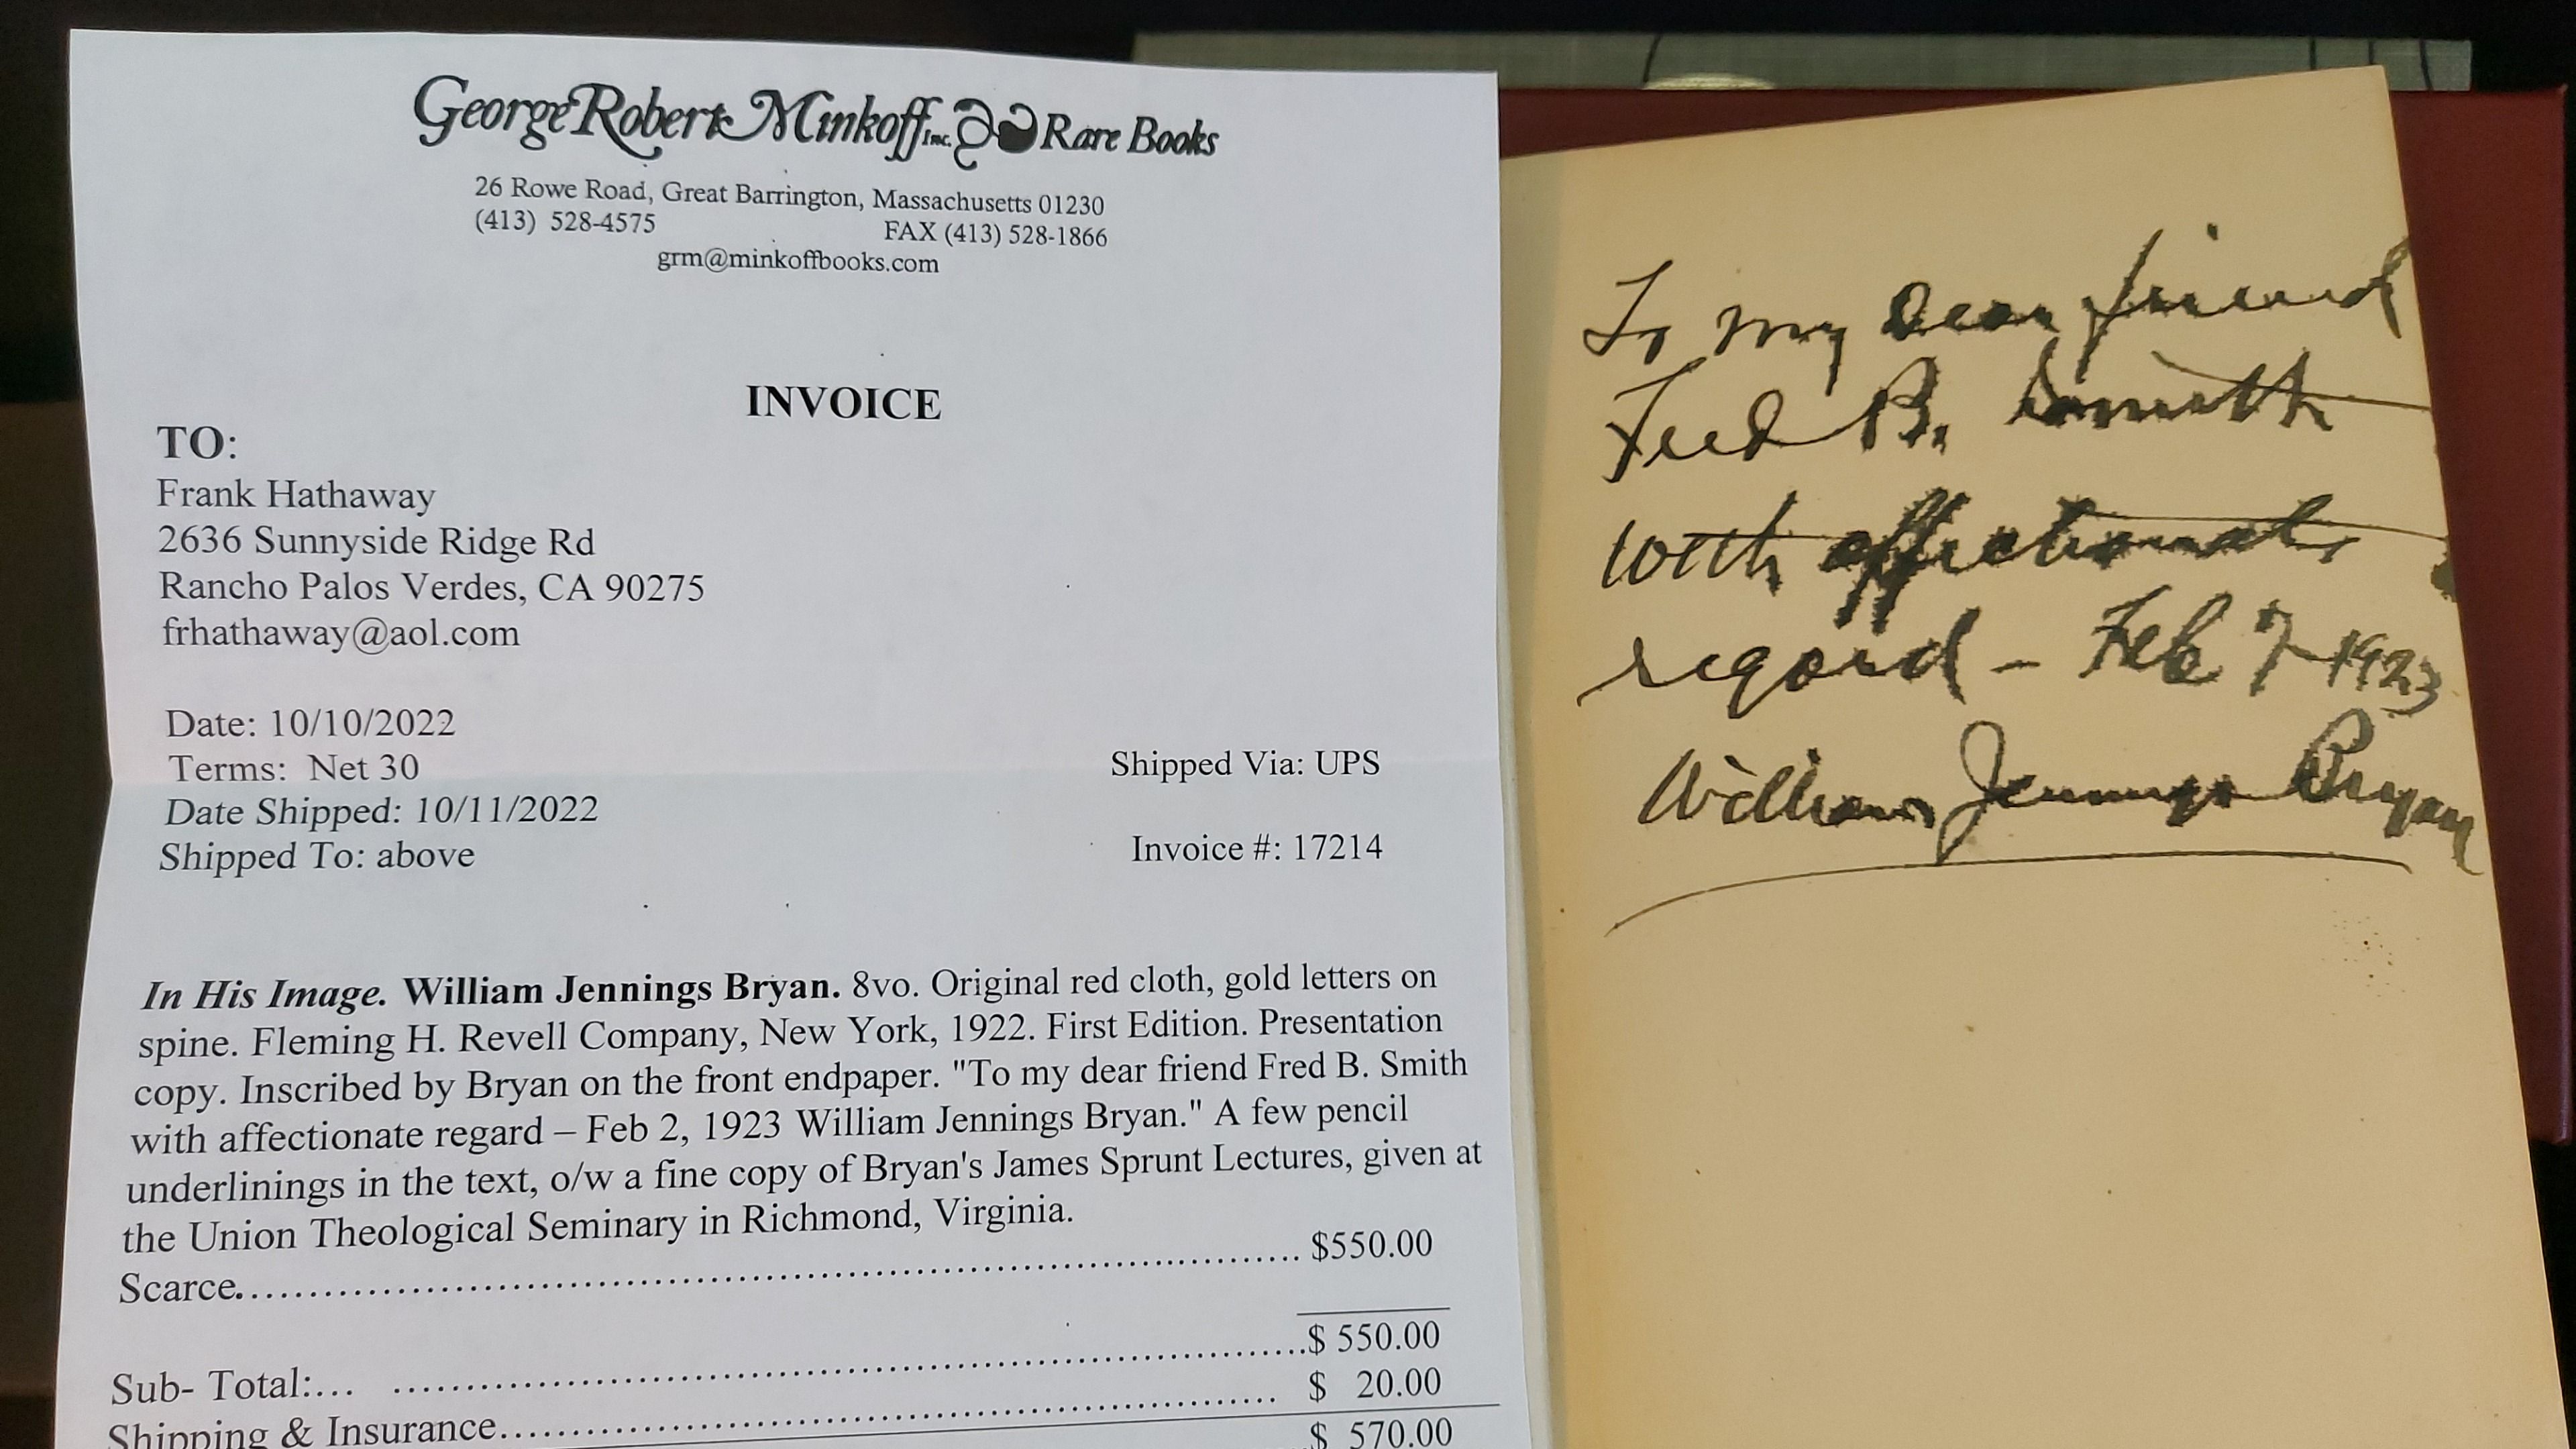 George Robert Minkoff Inc. Rare Books
26 Rowe Road, Great Barrington, Massachusetts 01230
(413) 528-4575 FAX (413) 528-1866
grm@minkoffbooks.com
INVOICE
TO:
Frank Hathaway
2636 Sunnyside Ridge Rd
Rancho Palos Verdes, CA 90275
frhathaway@aol.com
Date: 10/10/2022
Terms: Net 30
Shipped Via: UPS
Date Shipped: 10/11/2022
Shipped To: above
Invoice #: 17214
In His Image. William Jennings Bryan. 8vo. Original red cloth, gold letters on
spine. Fleming H. Revell Company, New York, 1922. First Edition. Presentation
copy. Inscribed by Bryan on the front endpaper. "To my dear friend Fred B. Smith
with affectionate regard – Feb 2, 1923 William Jennings Bryan." A few pencil
underlinings in the text, o/w a fine copy of Bryan's James Sprunt Lectures, given at
the Union Theological Seminary in Richmond, Virginia.
Scarce.................................................................................. $550.00
Sub- Total:... ..........................................................................$ 550.00
Shipping & Insurance.......................................................... $ 20.00
$ 570.00
To my dear friend
Fred B. Smith
with affectionate
regard – Feb 7–1923
William Jennings Bryan